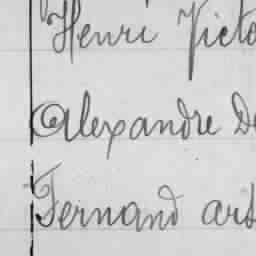 Henri Victo
Alexandre De
Fernand art